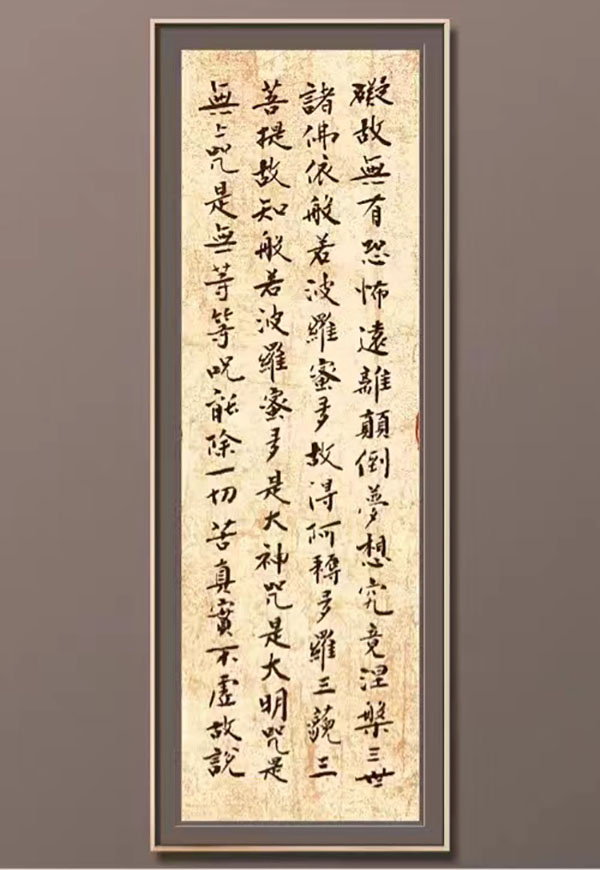 礙故無有恐怖遠離顛倒夢想究竟涅槃三世
諸佛依般若波羅蜜多故得阿耨多羅三藐三
菩提故知般若波羅蜜多是大神咒是大明咒是
無上咒是無等等咒能除一切苦真實不虛故說